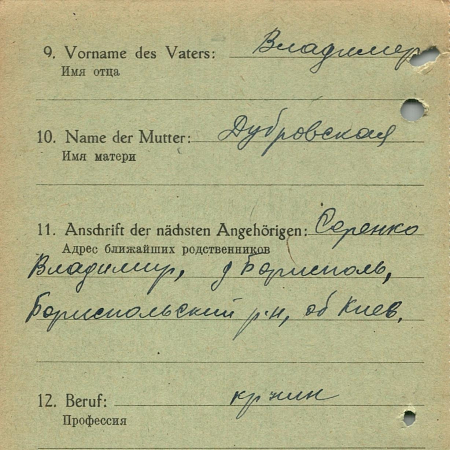 9. Vorname des Vaters: Владимир
Имя отца
10. Name der Mutter: Дубровская
Имя матери
11. Anschrift der nächsten Angehörigen: Серенко
Адрес ближайших родственников
Владимир, д Борисполь,
Бориспольский р-н, об Киев.
12. Beruf: кр-нин
Профессия